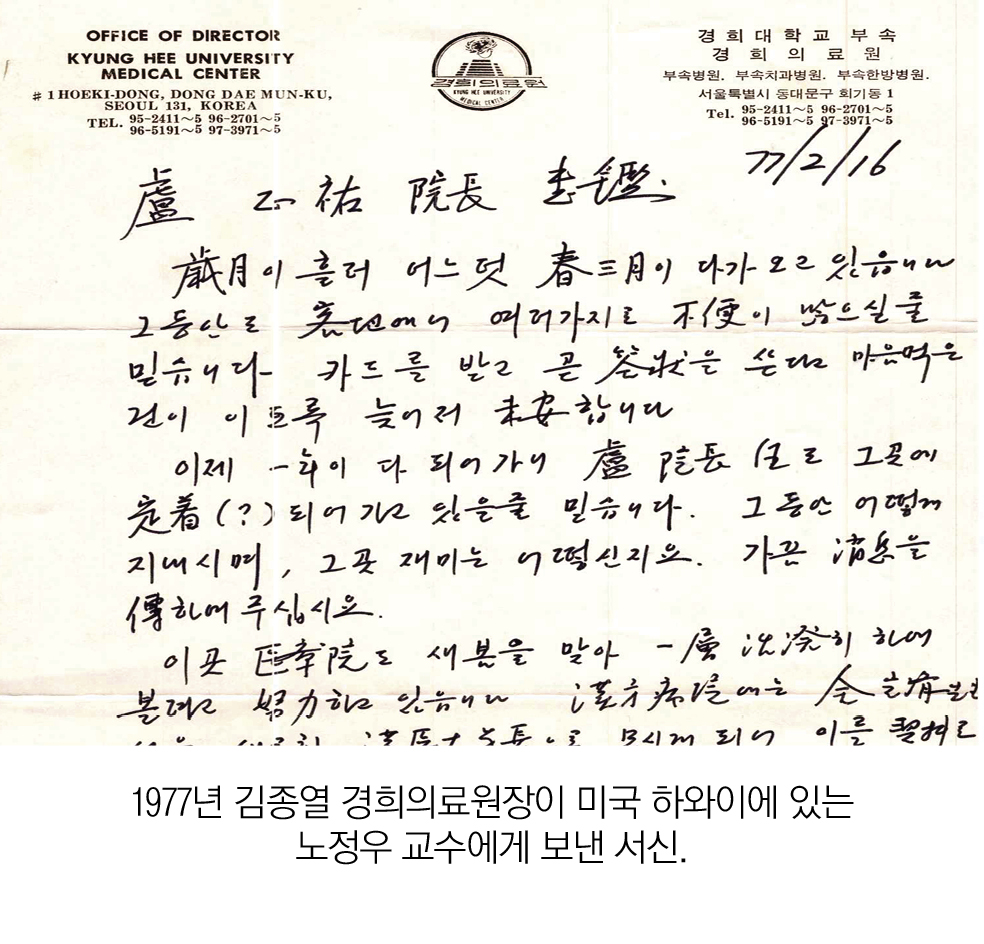 OFFICE OF DIRECTOR
KYUNG HEE UNIVERSITY
MEDICAL CENTER
# 1 HOEKI-DONG, DONG DAE MUN-KU,
SEOUL 131, KOREA
TEL. 95-2411~5 96-2701~5
96-5191~5 97-3971~5
경희의료원
KYUNG HEE UNIVERSITY
MEDICAL CENTER
경희대학교 부속
경희의료원
부속병원. 부속치과병원. 부속한방병원.
서울특별시 동대문구 회기동 1
Tel. 95-2411~5 96-2701~5
96-5191~5 97-3971~5
77/2/16
盧 正祐 院長 惠鑑.
歲月이 흘러 어느덧 春三月이 다가오고 있읍니다
그동안도 客地에서 여러가지로 不便이 많으실줄
믿습니다. 카드를 받고 곧 答狀을 쓴다고 마음먹은
것이 이토록 늦어져 未安합니다
이제 一年이 다 되어가니 盧院長 그곳에
定着(?)되어가고 있을줄 믿습니다. 그동안 어떻게
지내시며, 그곳 재미는 어떻신지요. 가끔 消息을
傳하여 주십시요.
이곳 醫療院도 새봄을 맞아 一層 活潑히 하여
볼려고 努力하고 있읍니다 漢方病院에는
되어 이를
1977년 김종열 경희의료원장이 미국 하와이에 있는
노정우 교수에게 보낸 서신.